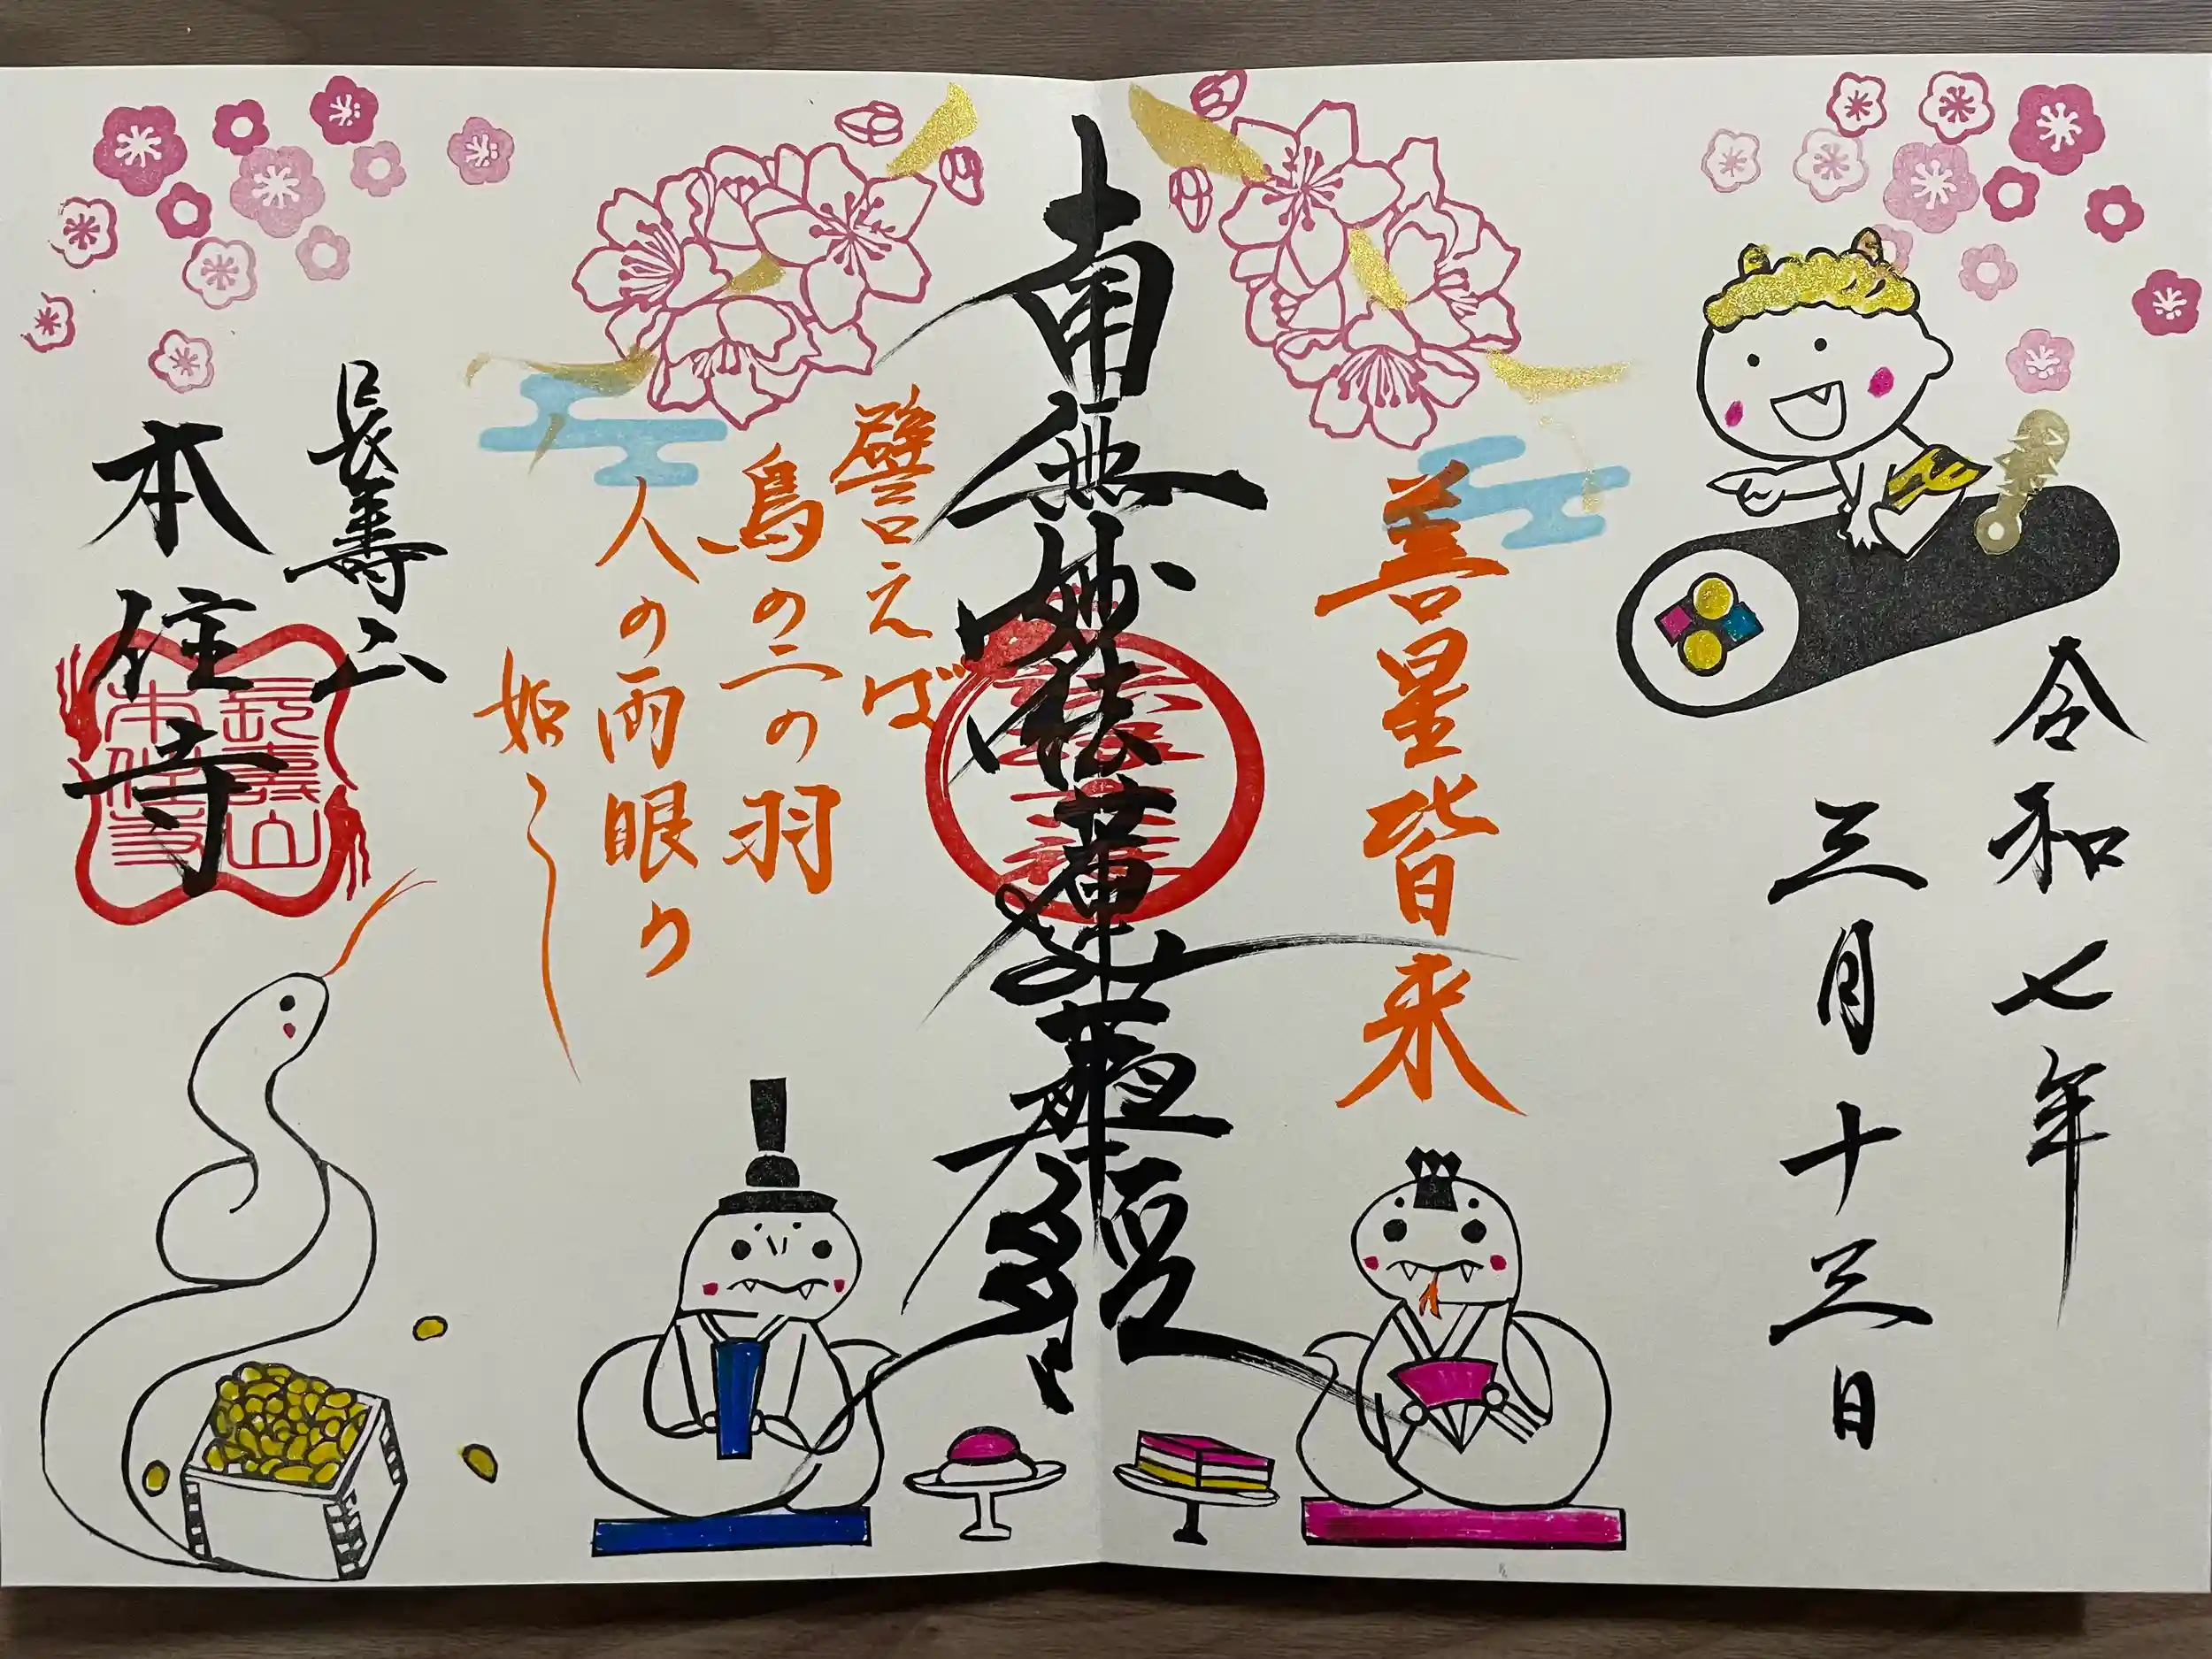 令和七年
三月十三日
善星皆来
南無妙法蓮華經
譬えば
鳥の二の羽
人の両眼の
如し
長壽山
本住寺
長壽山
本住寺